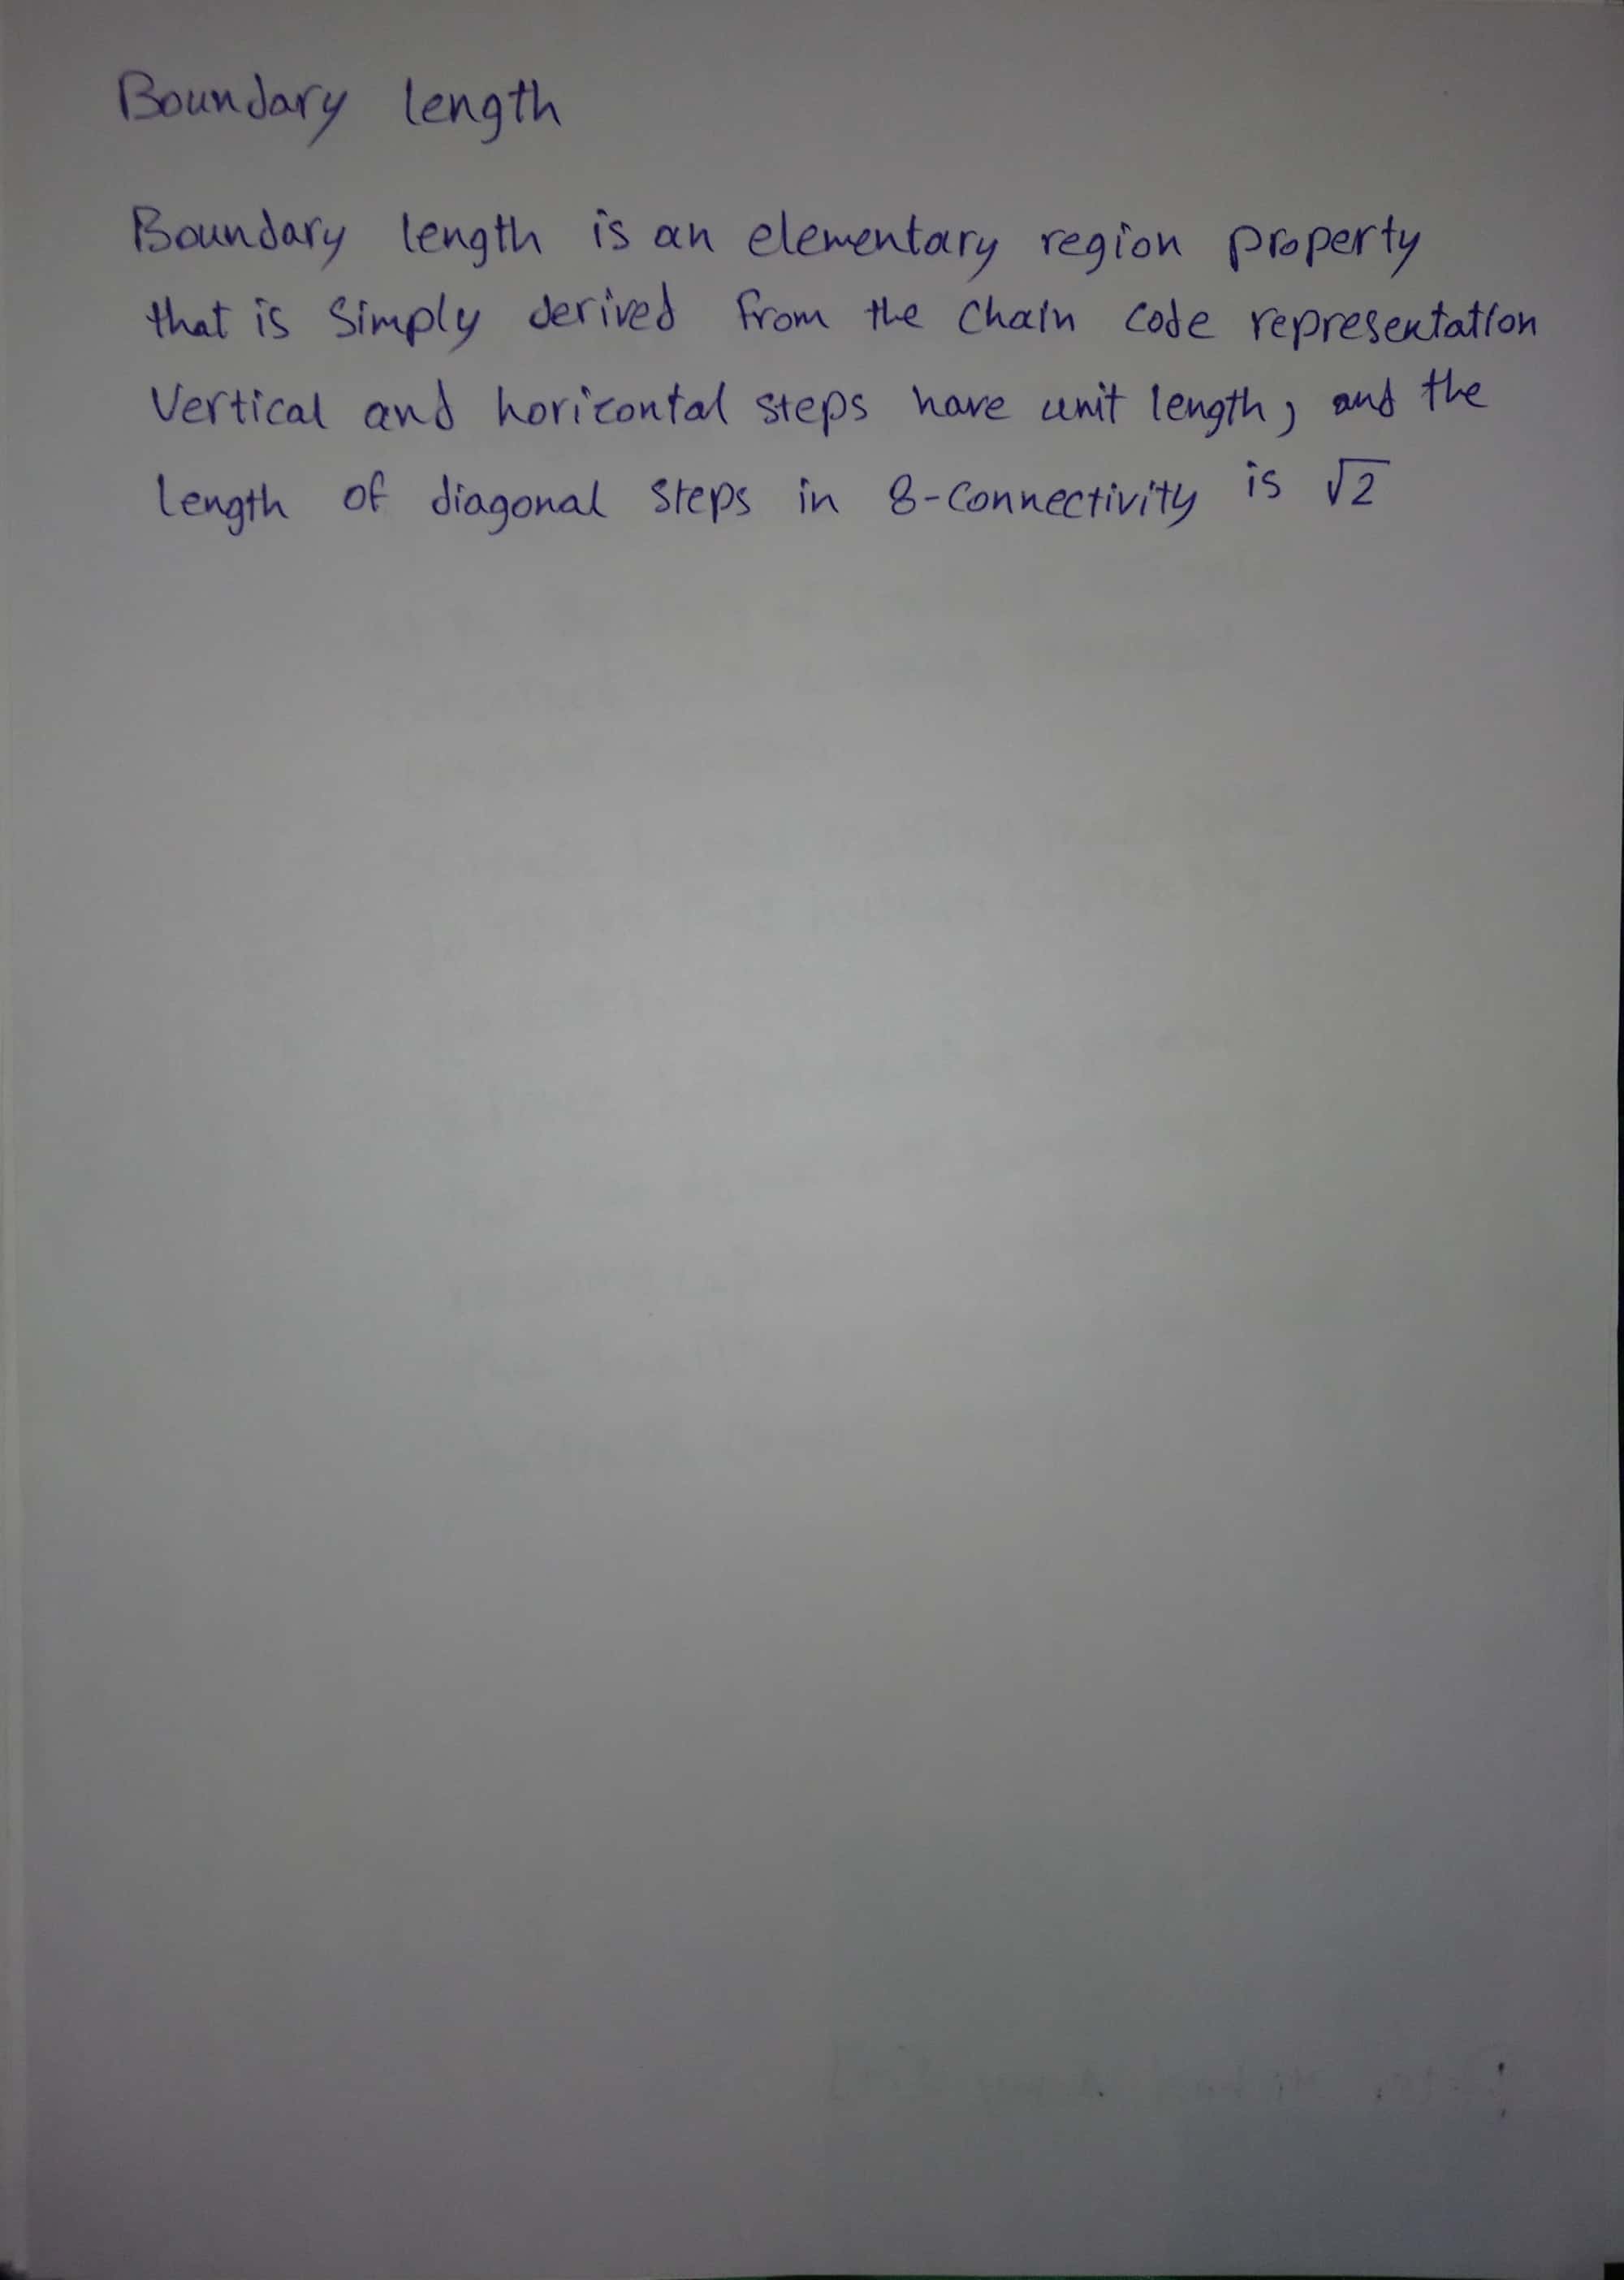 Boundary length
Boundary length is an elementary region property
that is simply derived from the chain code representation
Vertical and horizontal steps have unit length, and the
length of diagonal steps in 8-connectivity is √2